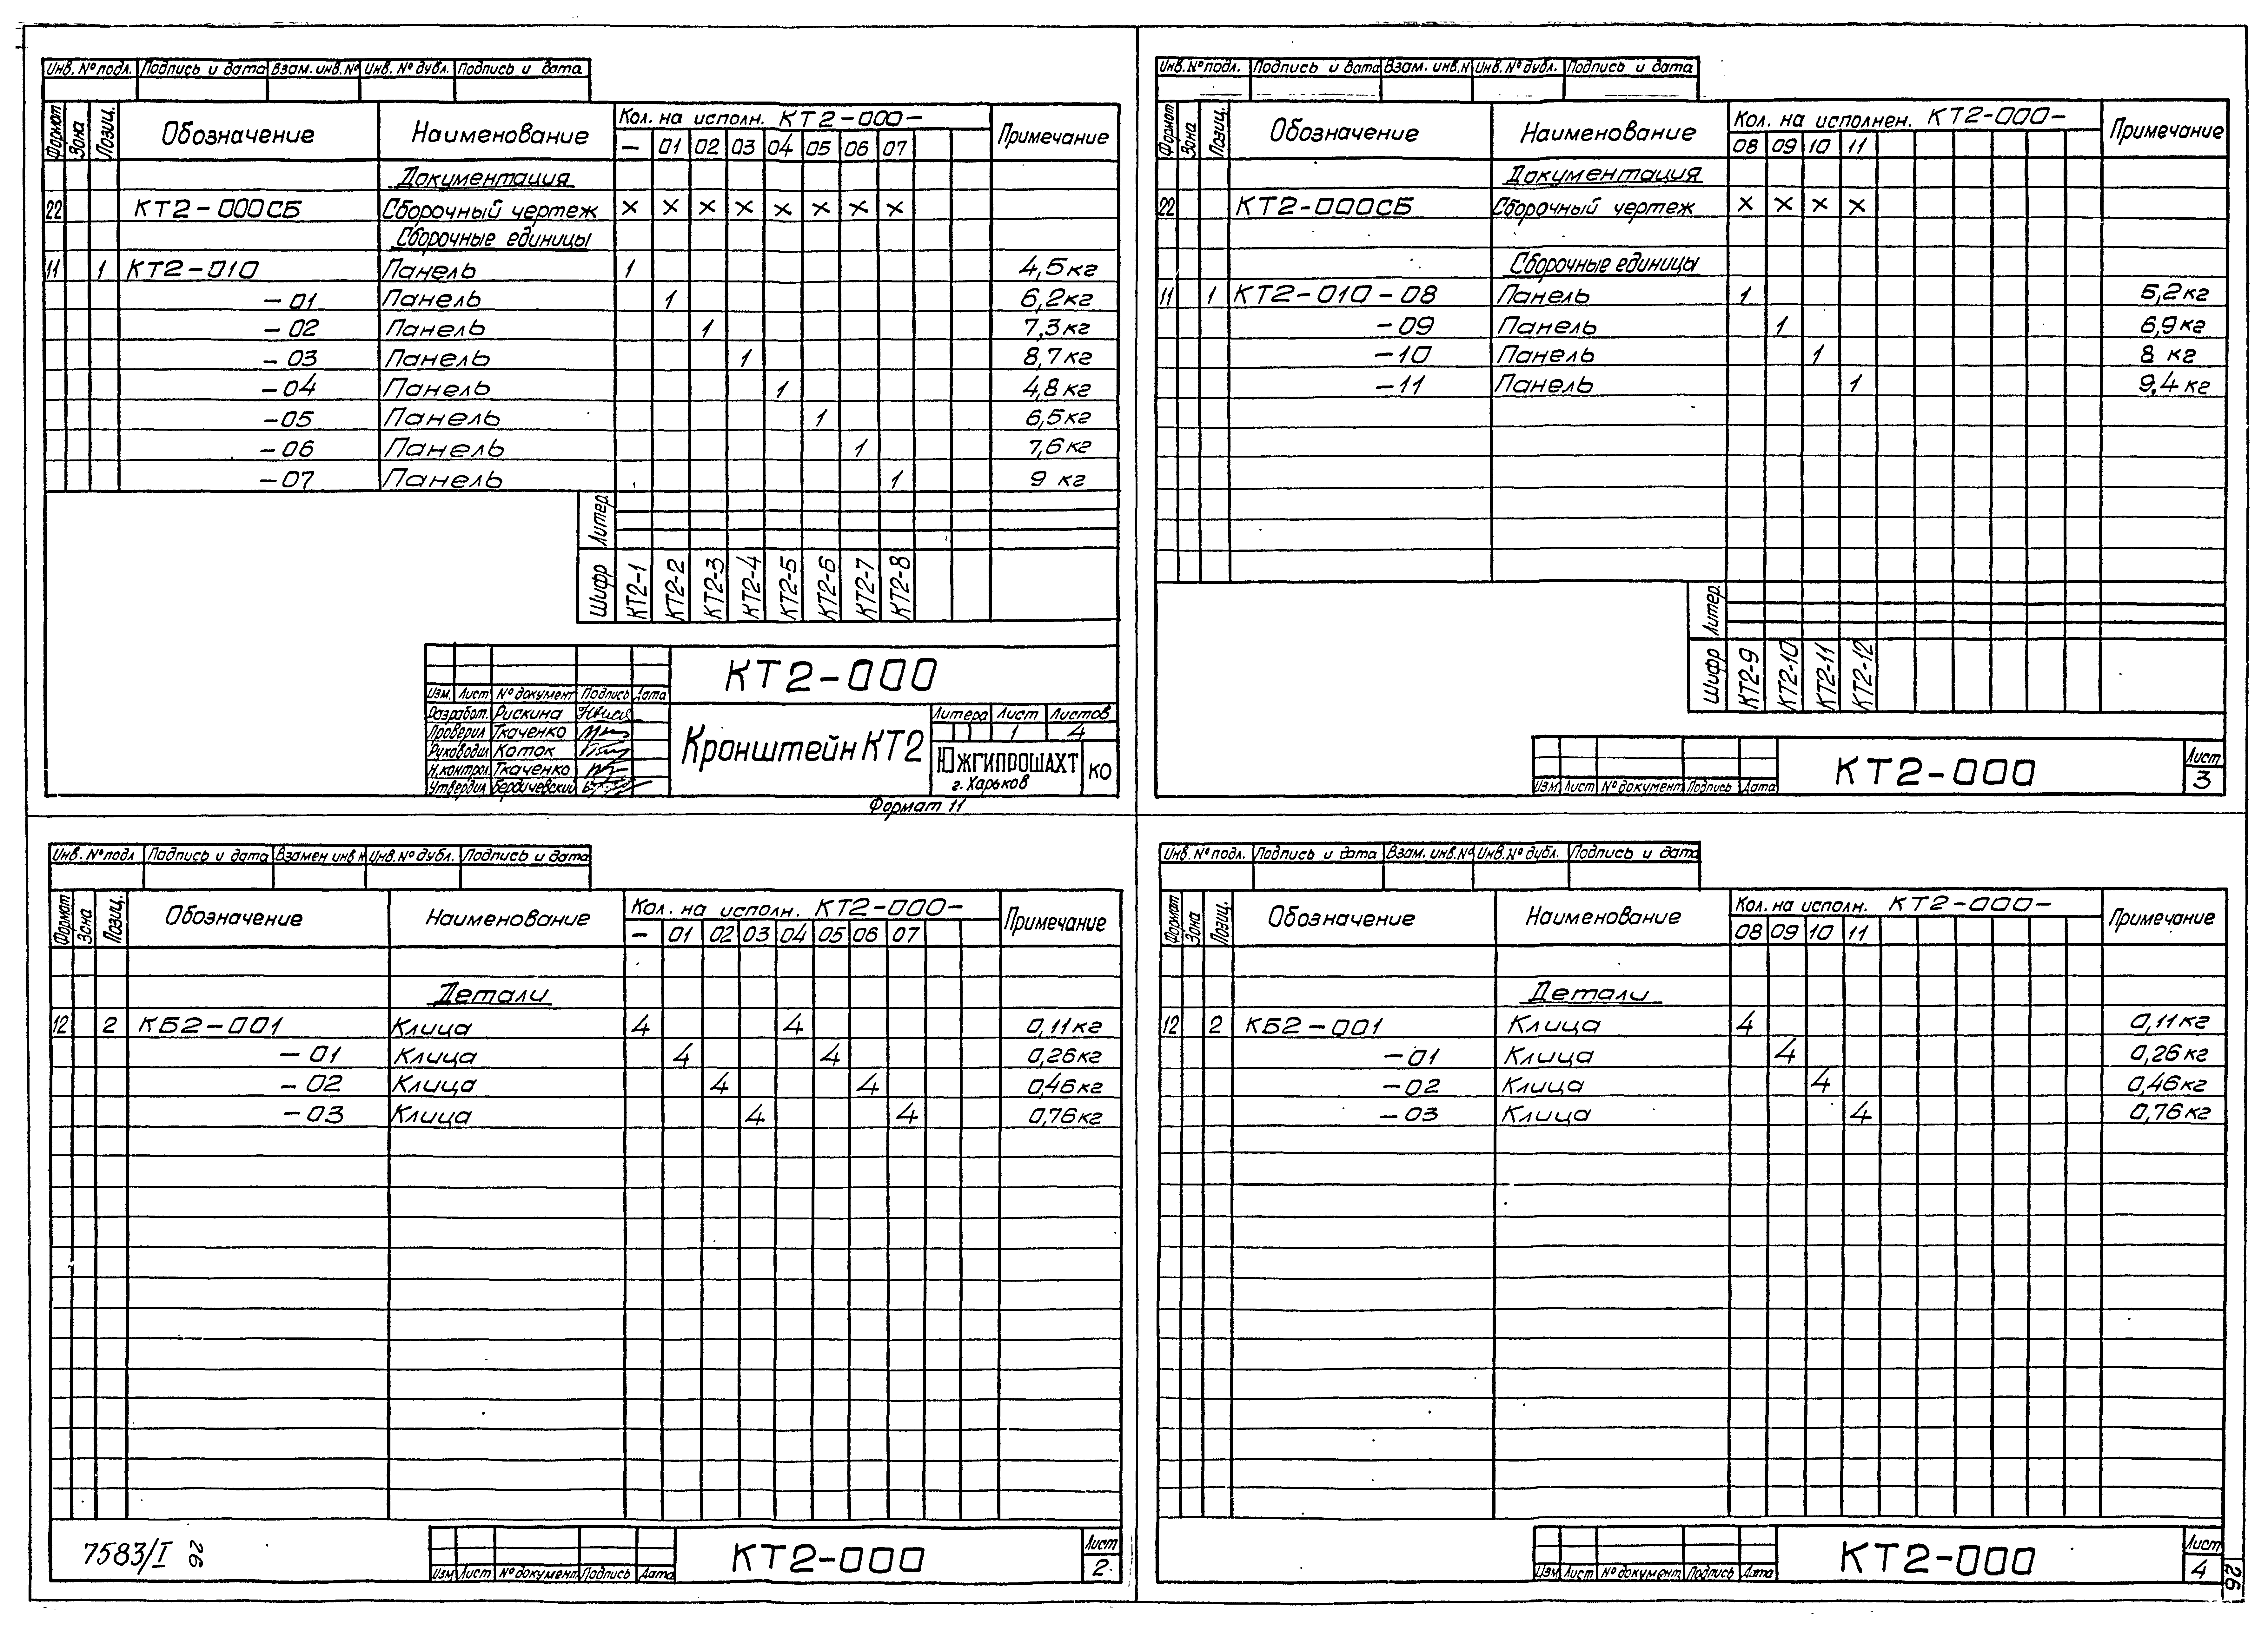 Инв. № подл. Подпись и дата Взам. инв. № Инв. № дубл. Подпись и дата
Формат Зона Позиц. Обозначение Наименование Кол. на исполн. КТ2-000- Примечание
— 01 02 03 04 05 06 07
Документация
22 КТ2-000СБ Сборочный чертеж × × × × × × × ×
Сборочные единицы
11 1 КТ2-010 Панель 1 4,5кг
-01 Панель 1 6,2кг
-02 Панель 1 7,3кг
-03 Панель 1 8,7кг
-04 Панель 1 4,8кг
-05 Панель 1 6,5кг
-06 Панель 1 7,6кг
-07 Панель 1 9 кг
Литер.
Шифр КТ2-1 КТ2-2 КТ2-3 КТ2-4 КТ2-5 КТ2-6 КТ2-7 КТ2-8
КТ2-000
Изм. Лист № документ Подпись Дата
Разработ. Рискина
Проверил Ткаченко
Руководил Коток
Н.контрол. Ткаченко
Утвердил Бердичевский
Кронштейн КТ2
Литера Лист Листов
1 4
Южгипрошахт КО
г. Харьков
Формат 11
Инв. № подл. Подпись и дата Взам. инв. № Инв. № дубл. Подпись и дата
Формат Зона Позиц. Обозначение Наименование Кол. на исполнен. КТ2-000- Примечание
08 09 10 11
Документация
22 КТ2-000СБ Сборочный чертеж × × × ×
Сборочные единицы
11 1 КТ2-010-08 Панель 1 5,2кг
-09 Панель 1 6,9кг
-10 Панель 1 8 кг
-11 Панель 1 9,4 кг
Литер.
Шифр КТ2-9 КТ2-10 КТ2-11 КТ2-12
Изм Лист № документ Подпись Дата
КТ2-000
Лист
3
Инв. № подл Подпись и дата Взамен инв № Инв. № дубл. Подпись и дата
Формат Зона Позиц. Обозначение Наименование Кол. на исполн. КТ2-000- Примечание
— 01 02 03 04 05 06 07
Детали
12 2 КБ2-001 Клица 4 4 0,11кг
-01 Клица 4 4 0,26кг
-02 Клица 4 4 0,46кг
-03 Клица 4 4 0,76кг
7583/I 26
Изм Лист № документ Подпись Дата
КТ2-000
Лист
2
Инв. № подл. Подпись и дата Взам. инв. № Инв. № дубл. Подпись и дата
Формат Зона Позиц. Обозначение Наименование Кол. на исполн. КТ2-000- Примечание
08 09 10 11
Детали
12 2 КБ2-001 Клица 4 0,11кг
-01 Клица 4 0,26кг
-02 Клица 4 0,46кг
-03 Клица 4 0,76кг
Изм Лист № документ Подпись Дата
КТ2-000
Лист
4
26